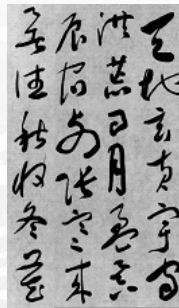 天地玄黄宇宙
洪荒日月盈昃
辰宿列張寒來
暑往秋收冬藏